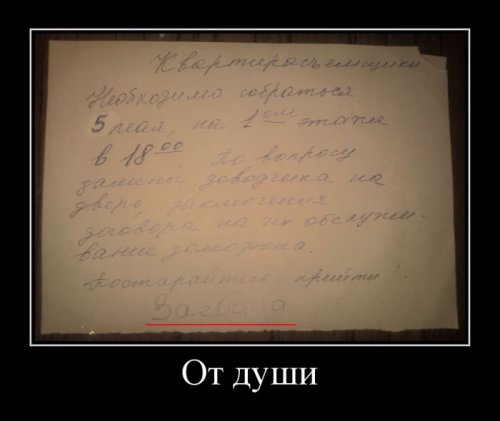 Квартиросъемщики
Необходимо собраться
5 мая, на 1ом этаже
в 18 00 По вопросу
замены доводчика на
дверь, заключения
договора на тех обслужи-
вание домофона.
Постарайтесь прийти!
Заебала
От души